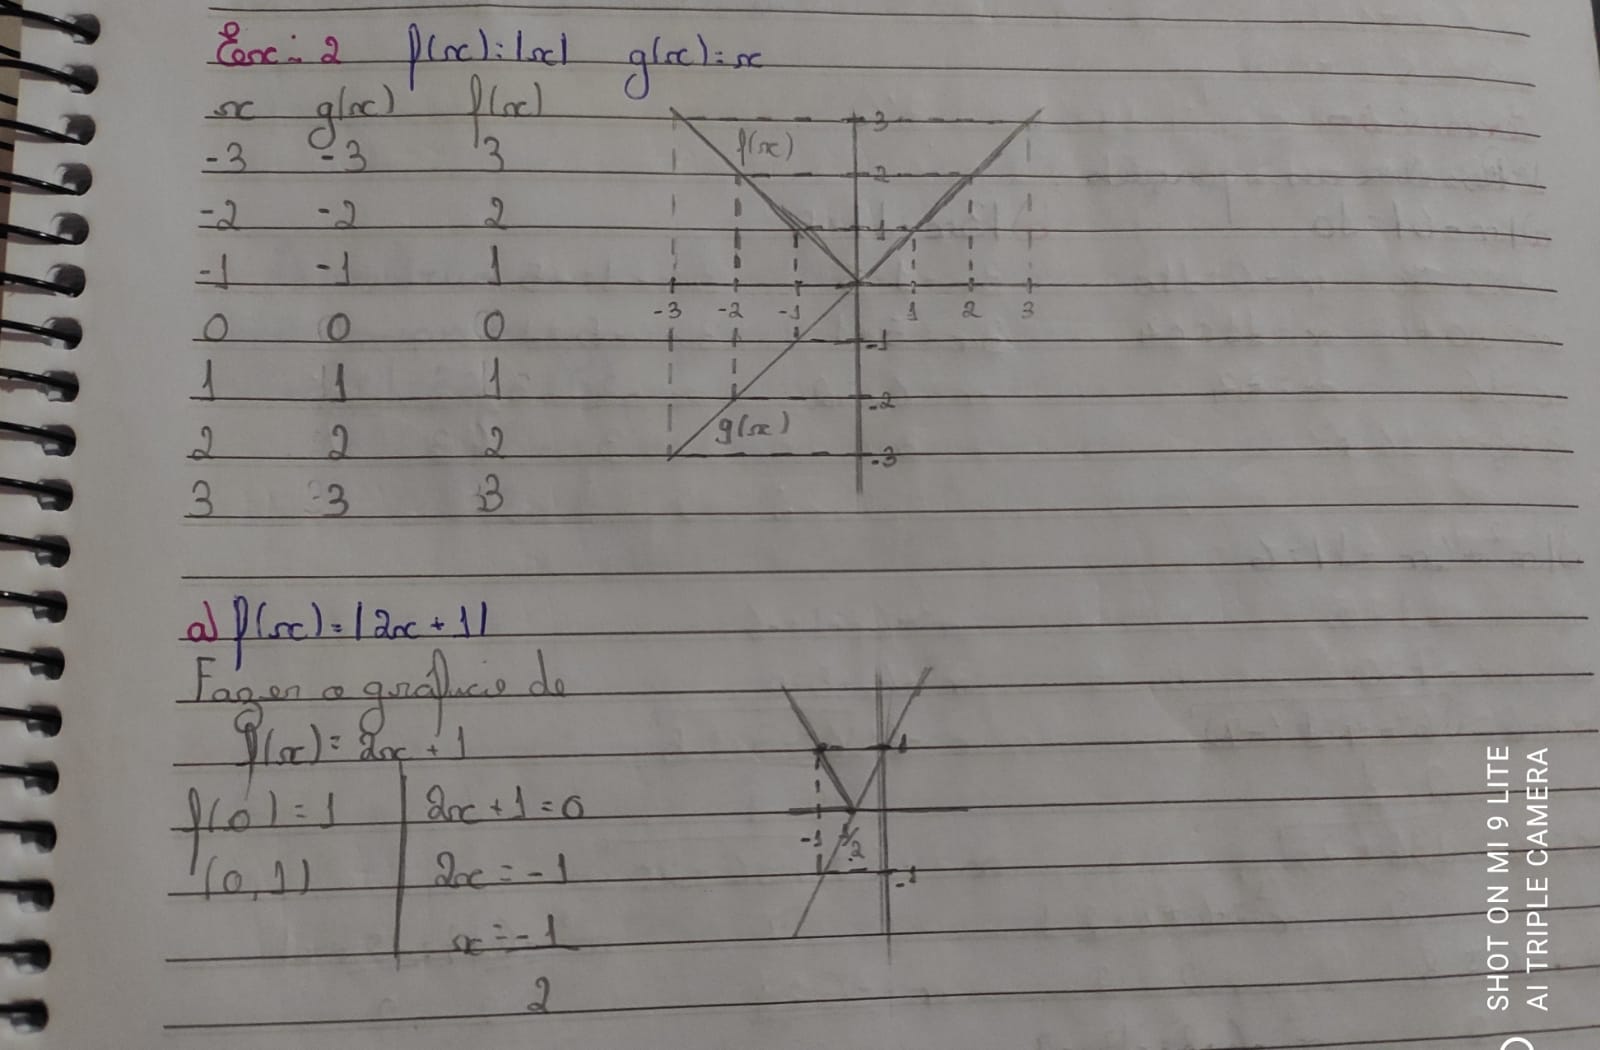 Ex: 2 f(x)=|x| g(x)=x
x g(x) f(x)
-3 -3 3
-2 -2 2
-1 -1 1
0 0 0
1 1 1
2 2 2
3 3 3
f(x)
3
2
1
-3 -2 -1 1 2 3
-1
-2
g(x)
-3
a) f(x)=|2x+1|
Fazer o gráfico de
f(x)=2x+1
f(0)=1 2x+1=0
(0,1) 2x=-1
x=-1
2
1
-1 1/2
-1
SHOT ON MI 9 LITE
AI TRIPLE CAMERA